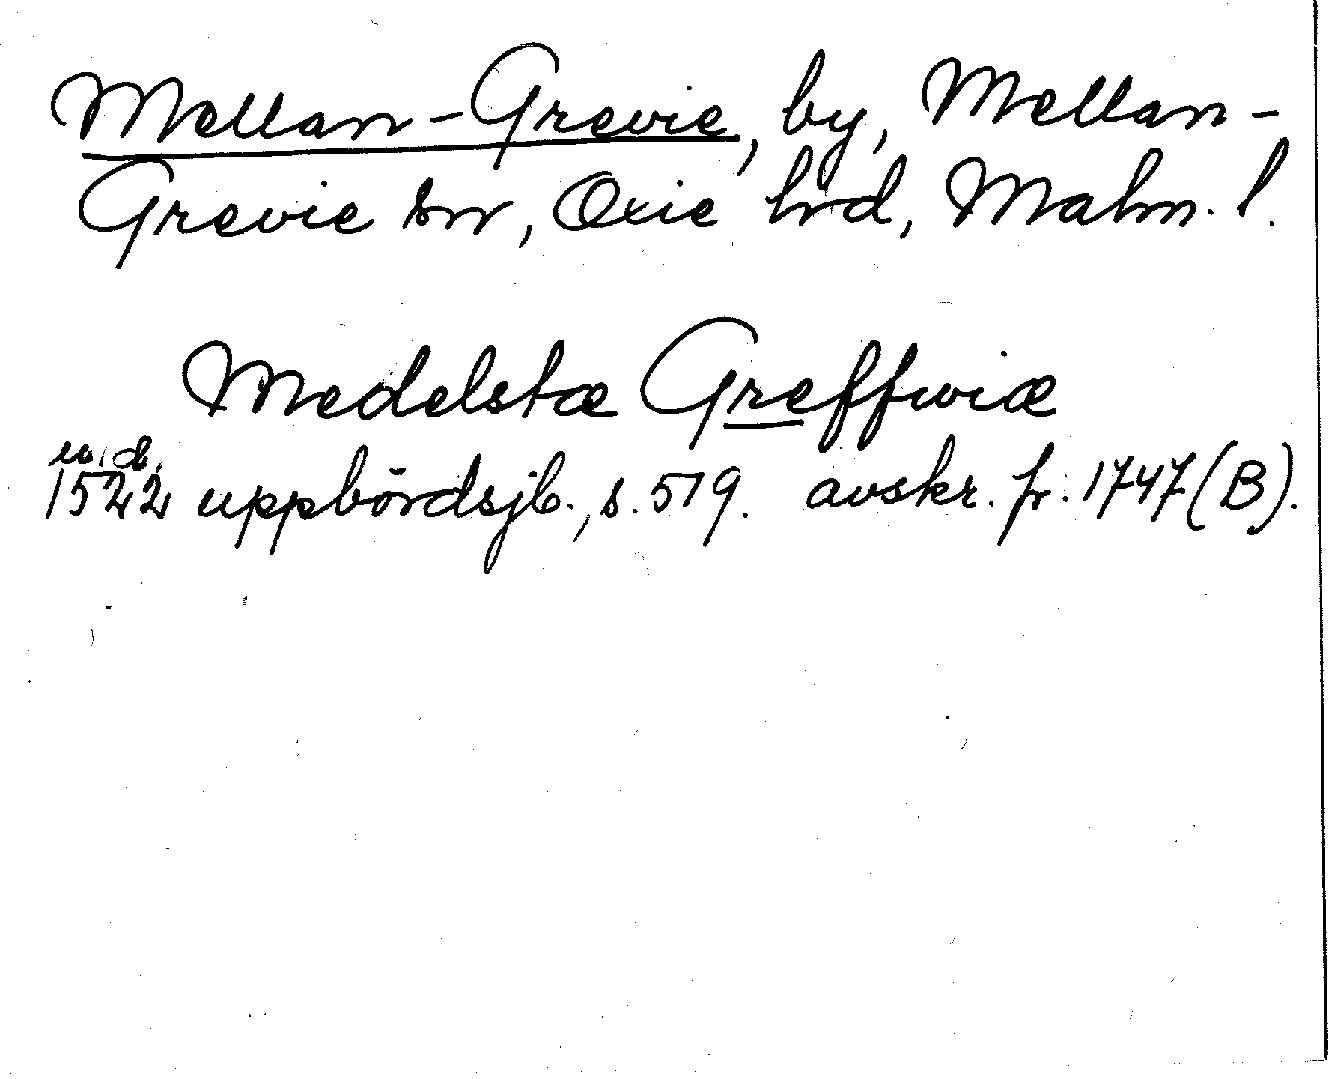 Mellan-Grevie, by, Mellan-
Grevie sn, Oxie hrd, Malm. l.
Medelstæ Greffwiæ
u. d.
1522 uppbördsjb., s. 519. avskr. fr. 1747 (B).